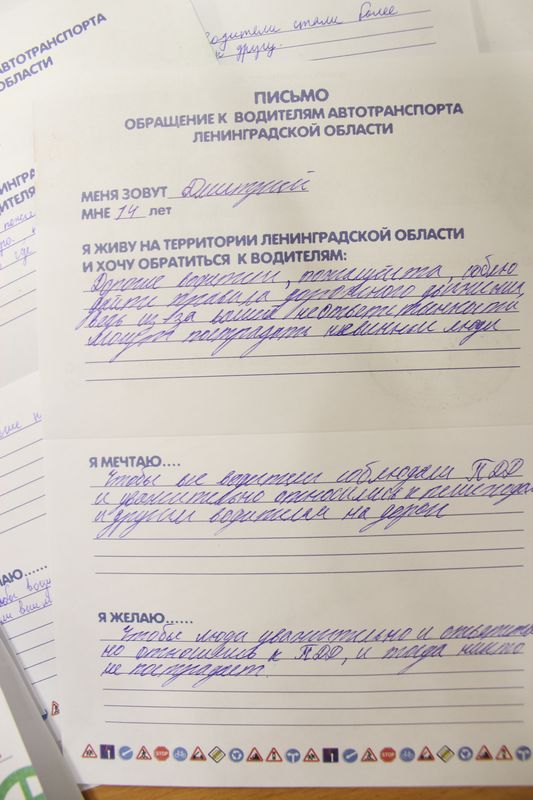 водители стали более
к другу.
АВТОТРАНСПОРТА
ОБЛАСТИ
ПИСЬМО
ОБРАЩЕНИЕ К ВОДИТЕЛЯМ АВТОТРАНСПОРТА
ЛЕНИНГРАДСКОЙ ОБЛАСТИ
МЕНЯ ЗОВУТ Дмитрий
МНЕ 14 лет
Я ЖИВУ НА ТЕРРИТОРИИ ЛЕНИНГРАДСКОЙ ОБЛАСТИ
И ХОЧУ ОБРАТИТЬСЯ К ВОДИТЕЛЯМ:
Дорогие водители, пожалуйста, соблю
дайте правила дорожного движения,
ведь из за вашей неответственности
могут пострадать невинные люди
Я МЕЧТАЮ....
Чтобы все водители соблюдали ПДД
и уважительно относились к пешеходам
и другим водителям на дороге
Я ЖЕЛАЮ......
Чтобы люди уважительно и ответствен
но относились к ПДД, и тогда никто
не пострадает.
STOP